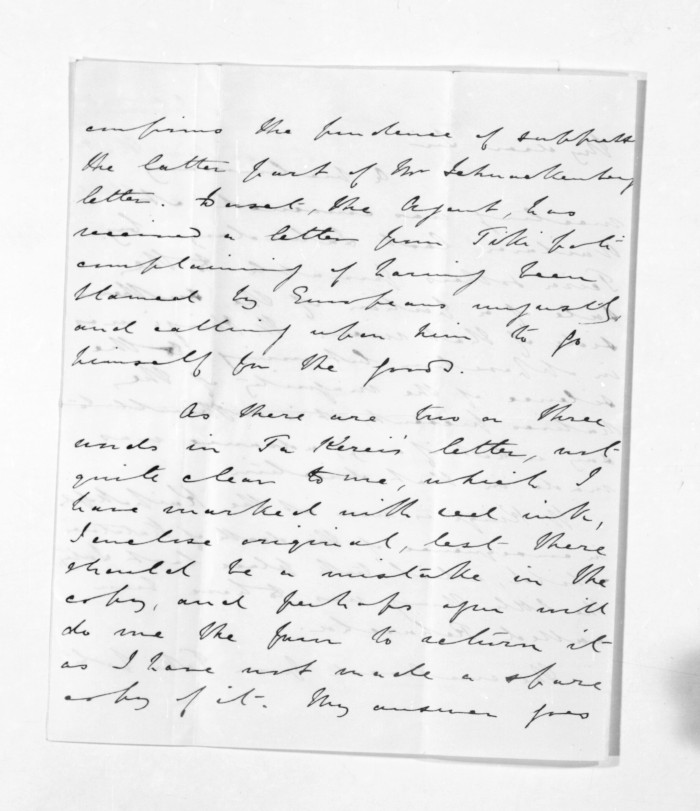 confirms the prudence of suppress
the latter part of Mr Schnackenberg
letter. the Agent, has
received a letter from Tiki
complaining of having been
blamed by Europeans unjustly
and calling upon him to go
himself for the goods.
As there are two or three
words in Ta Kerei's letter, not
quite clear to me, which I
have marked with red ink,
I enclose original, lest there
should be a mistake in the
copy, and perhaps you will
do me the favor to return it
as I have not made a spare
copy of it. My answer goes